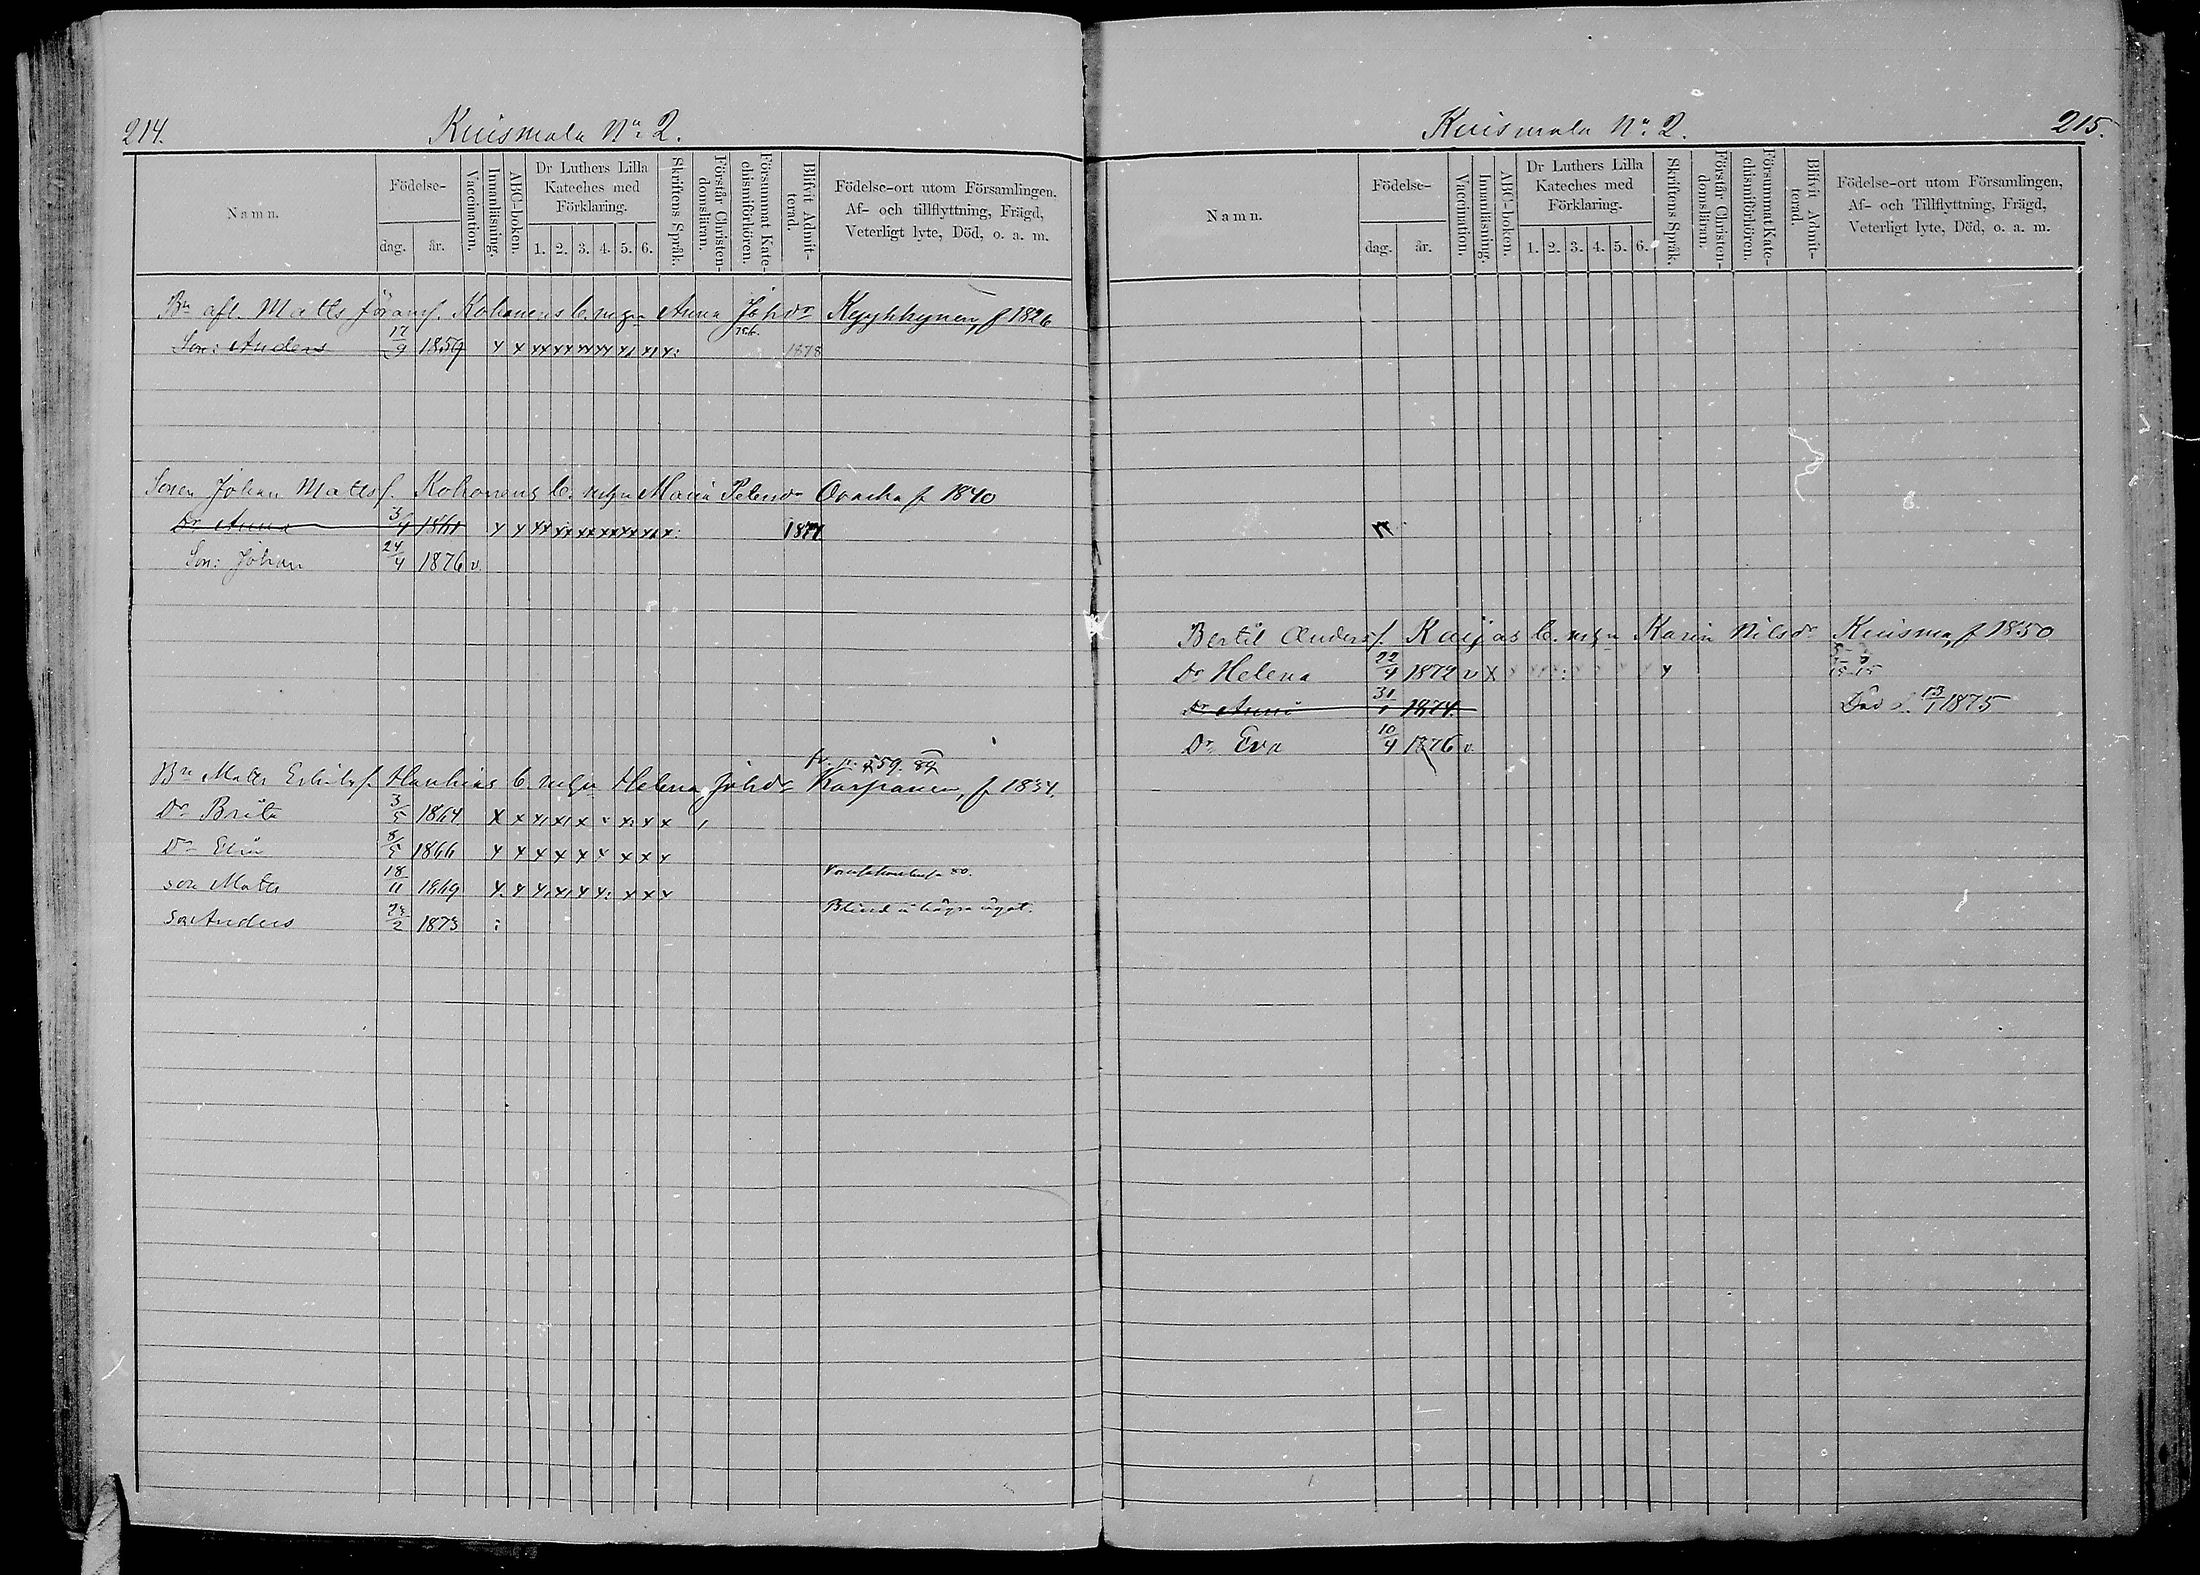 214.
Kuismala No 2.
Namn.
Födelse-
dag.
år.
Vaccination.
Innanläsning.
ABC-boken.
Dr Luthers Lilla
Kateches med
Förklaring.
1. 2. 3. 4. 5. 6.
Skriftens Språk.
Förstår Christen-
domsläran.
Försummat Kate-
chismiförhören.
Blifvit Admit-
terad.
Födelse-ort utom Församlingen,
Af- och tillflyttning, Frägd,
Veterligt lyte, Död, o. a. m.
Bn afl. Matts Kohonens b. m Anna Johdr Kyyhkynen, f 1826
Son: Anders 17/9 1859 x x xx xx xx xx x: 1878
Sonen Johan Mattsf. Kohonens b. Maria Petersdr Ovaska f 1840
Dr Anna 3/4 1861 x x 1877
Son: Johan 24/4 1876 v.
Bn Matts Hankias b. Helena Johdr Karpanen, f 1834.
Dr Brita 3/5 1864 x x
Dr Elin 8/5 1866 x x x x x x x x x
son Matts 18/11 1869
son Anders 2/2 1873 :
Blind å högra ögat.
Kuismala No 2.
215.
Namn.
Födelse-
dag.
år.
Vaccination.
Innanläsning.
ABC-boken.
Dr Luthers Lilla
Kateches med
Förklaring.
1. 2. 3. 4. 5. 6.
Skriftens Språk.
Förstår Christen-
domsläran.
Försummat Kate-
chismiförhören.
Blifvit Admit-
terad.
Födelse-ort utom Församlingen,
Af- och Tillflyttning, Frägd,
Veterligt lyte, Död, o. a. m.
Bertil Andersf. Kaijas b. Karin Nilsdr Kuisma, f 1850
Dr Helena 22/4 1872 v x
Dr Anna 31/1 1874. Död d. 13/1 1875
Dr Eva 10/4 1876 v.